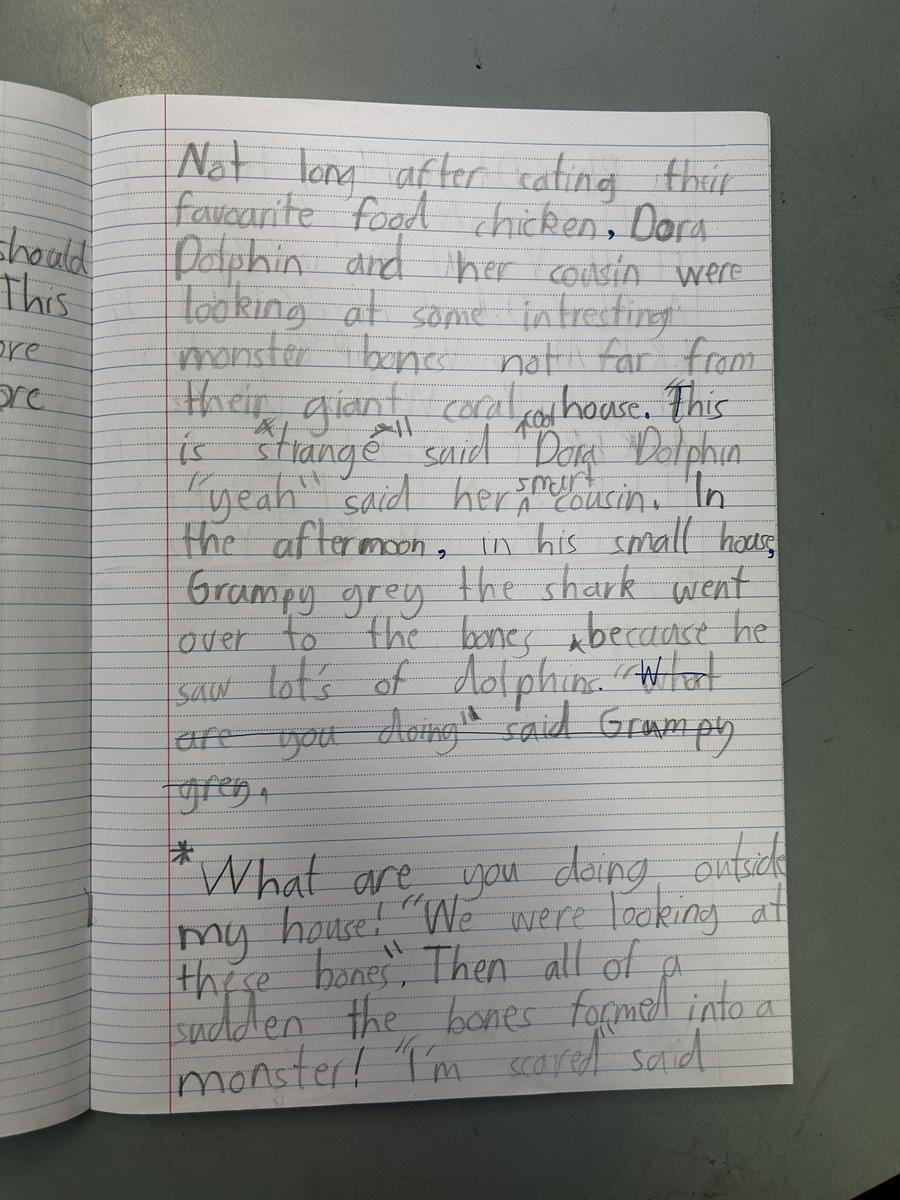 should
This
ore
ore
Not long after eating their
favourite food chicken, Dora
Dolphin and her cousin were
looking at some intresting
monster bones not far from
their giant coral house. "This
is strange" said cool Dora Dolphin
"yeah" said her smart cousin. In
the afternoon, in his small house,
Grumpy grey the shark went
over to the bones because he
saw lot's of dolphins. "What
are you doing" said Grumpy
grey.
*What are you doing outside
my house! "We were looking at
these bones". Then all of a
sudden the bones formed into a
monster! "I'm scared" said